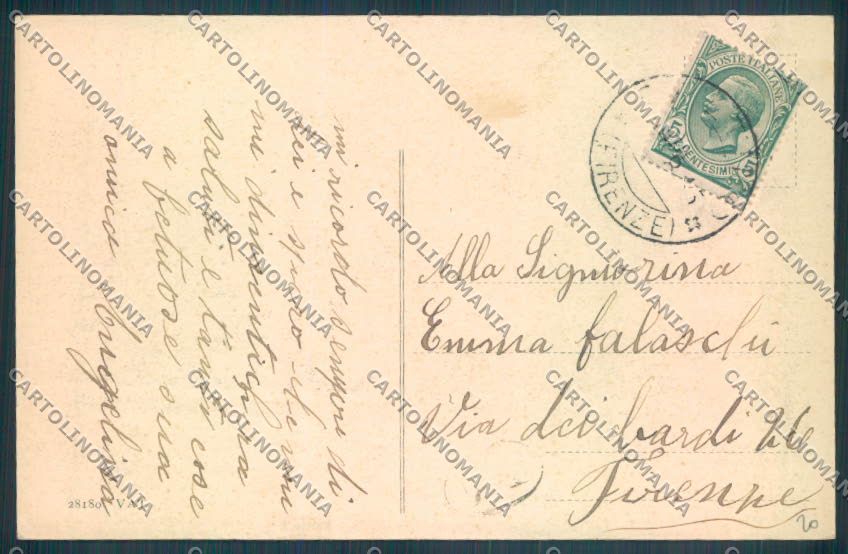 mi ricordo sempre di
lei e spero che non
mi dimentichera
saluti e tante cose
a fetuose sua
amica Angelina
POSTE ITALIANE
5 CENTESIMI 5
(FIRENZE)
Alla Signiorina
Emma Falaschi
Via dei bardi
Firenze
20
28180 VAT
CARTOLINOMANIA